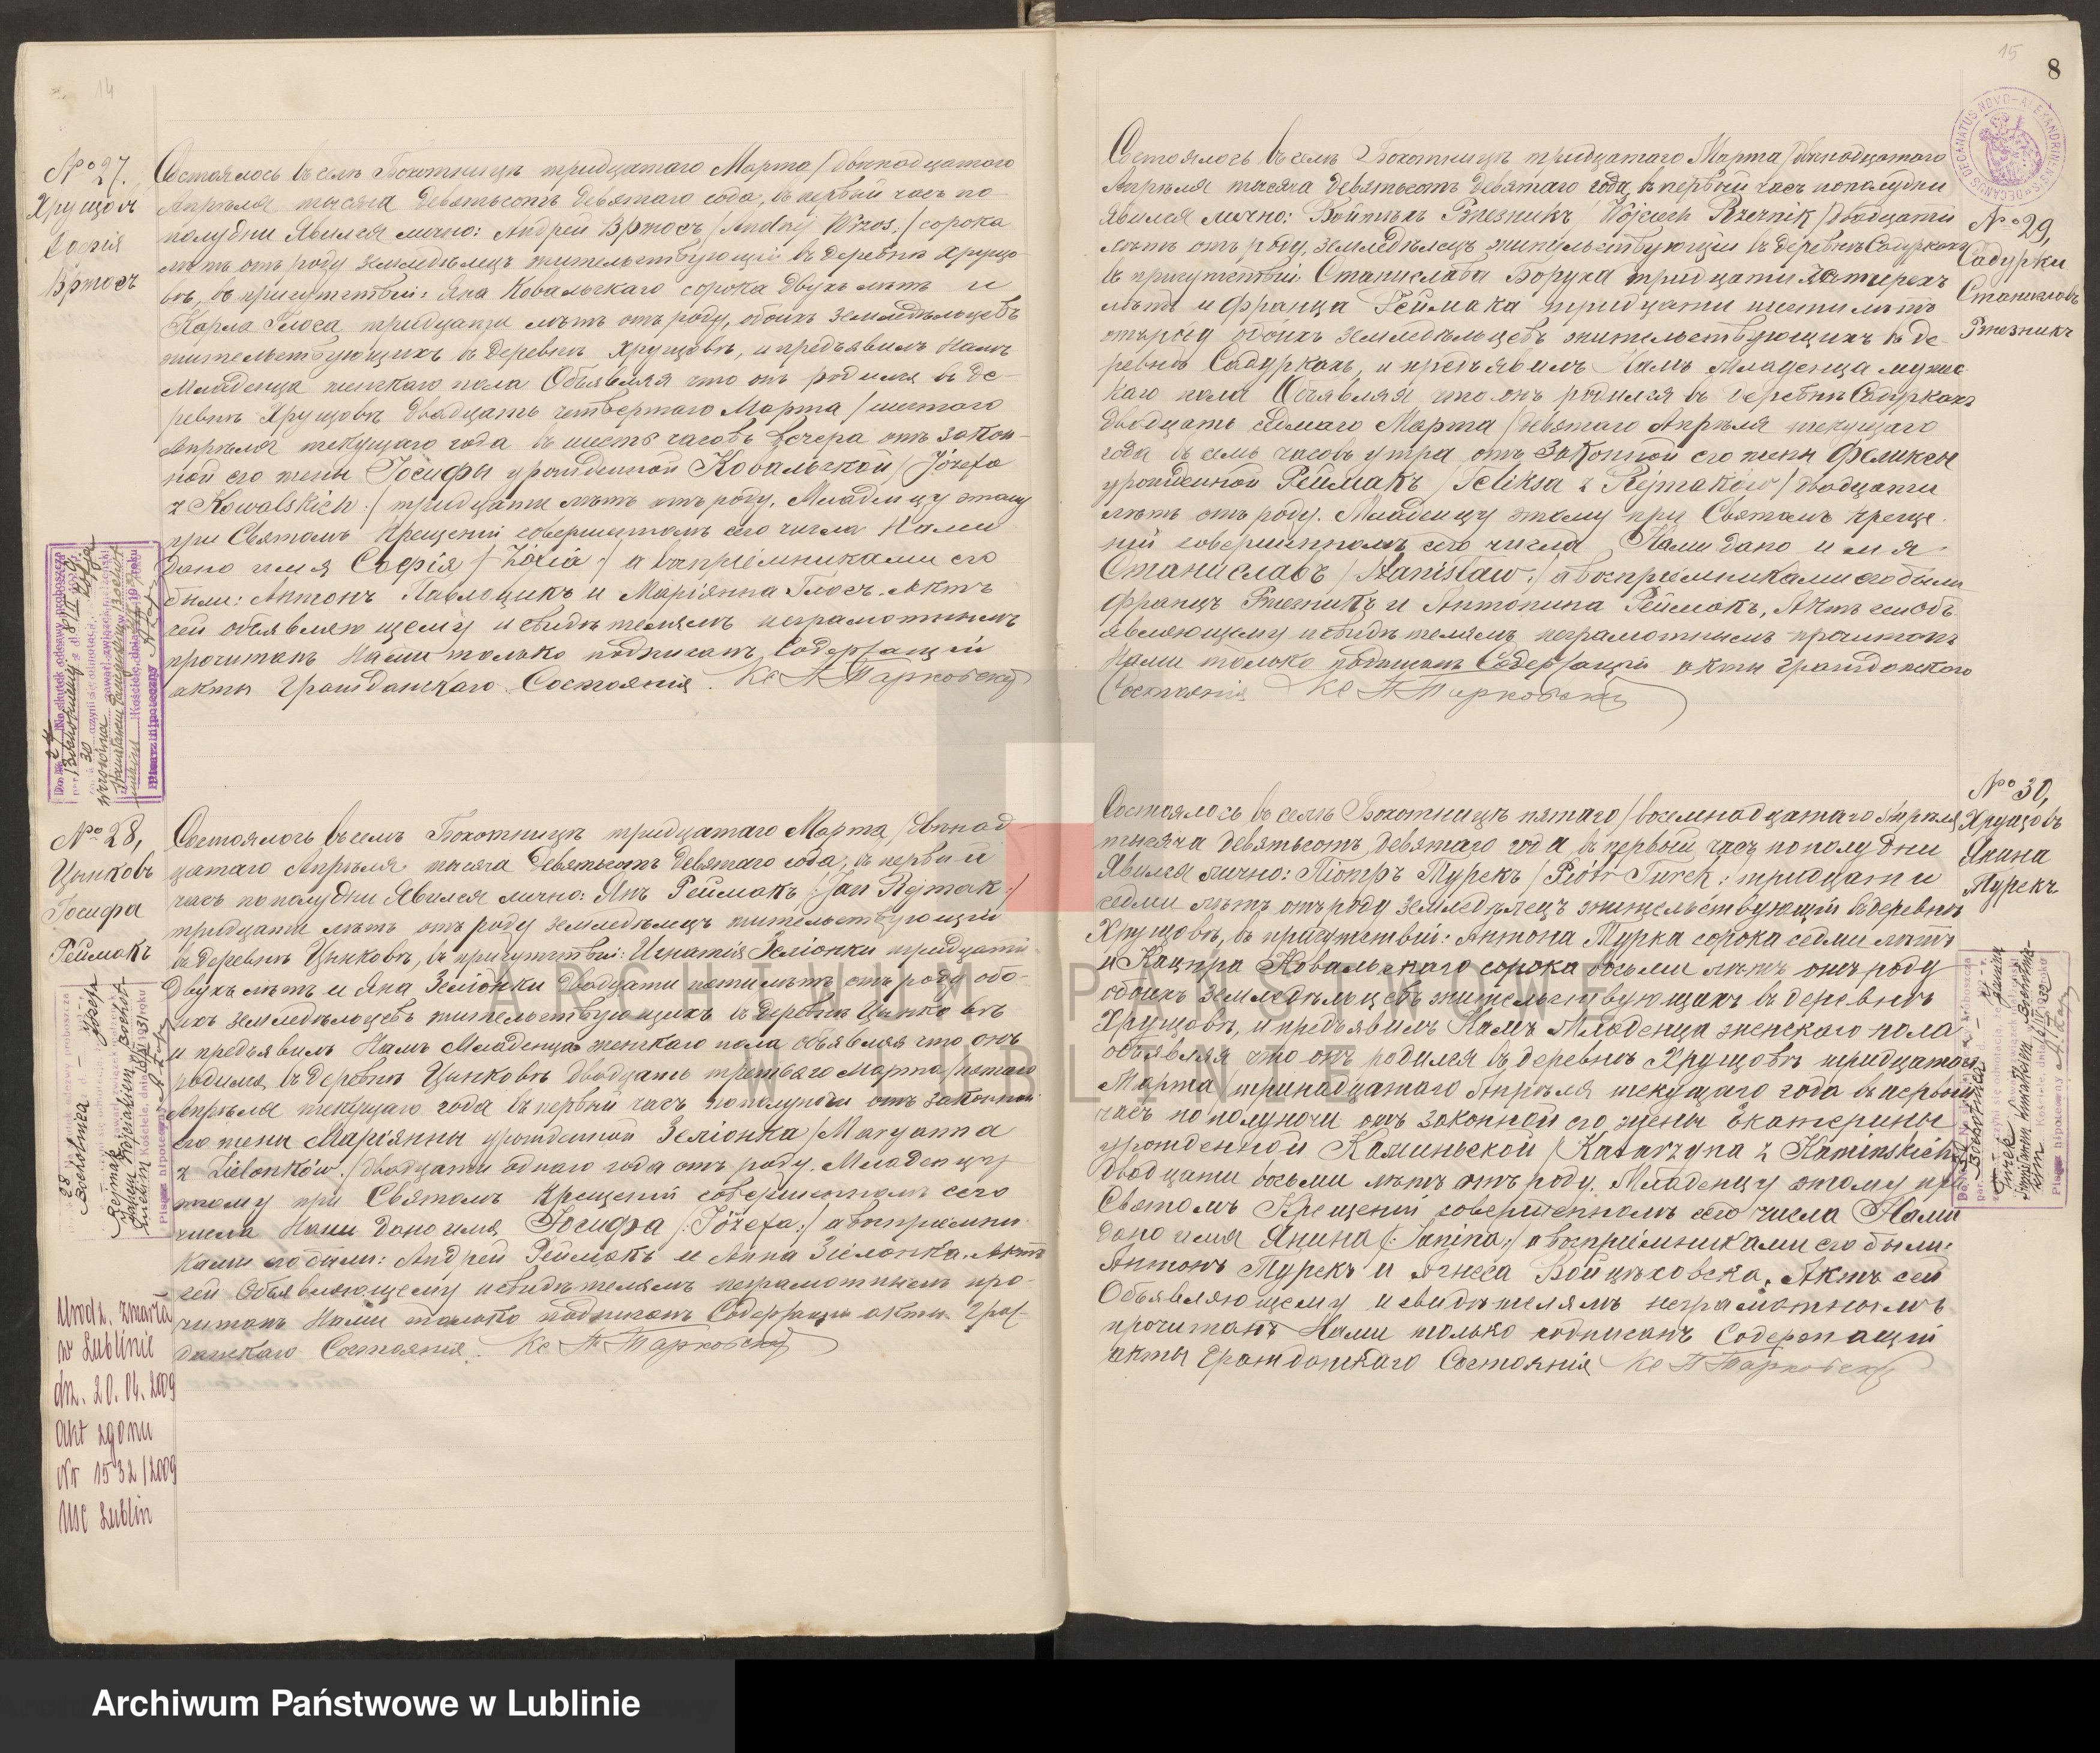 14
№ 27.
Хрущовъ
Софія
Вржосъ
Состоялось въ селѣ Бохотницѣ тридцатаго Марта /двѣнадцатаго
Апрѣля тысяча девятьсотъ девятаго года, въ первый часъ по-
полудни Явился лично: Андрей Вржосъ /Andrzej Wrzos:/ сорока
лѣтъ отъ роду земледѣлецъ жительствующій въ деревнѣ Хрущо-
вѣ, въ присутствіи: Яна Ковальскаго сорока двухъ лѣтъ и
Карла Глоса тридцати лѣтъ отъ роду, обоихъ земледѣльцевъ
жительствующихъ въ деревнѣ Хрущовѣ, и предъявилъ Намъ
Младенца женскаго пола Объявляя что онъ родился въ де-
ревнѣ Хрущовѣ двадцать четвертаго Марта /шестого
Апрѣля текущаго года въ шесть часовъ вечера отъ закон-
ной его жены Іосифы урожденной Ковальской /Józefa
z Kowalskich:/ тридцати лѣтъ отъ роду. Младенцу этому
при Святомъ Крещеніи совершенномъ сего числа Нами
дано имя Софія /Zofia:/ а воспріемниками его
были: Антонъ Павлощикъ и Маріянна Глосъ. Актъ
сей объявляющему и свидѣтелямъ неграмотнымъ
прочитанъ Нами только подписанъ, Содержащій
акты Гражданскаго Состоянія. Кс П Тарковскій
№ 28,
Цынковъ
Іосифа
Реймакъ
Состоялось въ селѣ Бохотницѣ тридцатаго Марта /двѣнад-
цатаго Апрѣля тысяча девятьсотъ девятаго года, въ первый
часъ пополудни Явился лично: Янъ Реймакъ /Jan Rejmak:/
тридцати лѣтъ отъ роду земледѣлецъ жительствующій
въ деревнѣ Цынковѣ, въ присутствіи: Игнатія Зеліонки тридцати
двухъ лѣтъ и Яна Зеліонки двадцати пяти лѣтъ отъ роду обо-
ихъ земледѣльцевъ жительствующихъ въ деревнѣ Цынковѣ
и предъявилъ Намъ Младенца женскаго пола объявляя что онъ
родился въ деревнѣ Цынковѣ двадцать третьяго Марта /пятаго
Апрѣля текущаго года въ первый часъ пополуночи отъ законной
его жены Маріянны урожденной Зеліонка /Maryanna
z Zielonków:/ двадцати одного года отъ роду. Младенцу
этому при Святомъ Крещеніи совершенномъ сего
числа Нами дано имя Іосифа /:Józefa:/ а воспріемни-
ками его были: Андрей Реймакъ и Анна Зіелонка. Актъ
сей Объявляющему и свидѣтелямъ неграмотнымъ про-
читанъ Нами только подписанъ Содержащій акты Граж-
данскаго Состоянія. Кс П Тарковскій
Urodz. zmarła
w Lublinie
dn. 20.04.2009
akt zgonu
Nr 1532/2009
USC Lublin
15
8
Состоялось въ селѣ Бохотницѣ тридцатаго Марта /двѣнадцатаго
Апрѣля тысяча девятьсотъ девятаго года, въ первый часъ пополудни
явился лично: Войтѣхъ Ржезникъ /Wojciech Rzeznik/ двадцати
лѣтъ отъ роду, земледѣлецъ жительствующій въ деревнѣ Садуркахъ
въ присутствіи: Станислава Борука тридцати четырехъ
лѣтъ и Франца Реймака тридцати шести лѣтъ
отъ роду обоихъ земледѣльцевъ жительствующихъ въ де-
ревнѣ Садуркахъ, и предъявилъ Намъ Младенца мужес-
каго пола Объявляя что онъ родился въ деревнѣ Садуркахъ
двадцать седьмаго Марта /девятаго Апрѣля текущаго
года въ семь часовъ утра отъ Законной его жены Феликсы
урожденной Реймакъ /Feliksa z Rejmaków/ двадцати
лѣтъ отъ роду. Младенцу этому при Святомъ Креще-
ніи совершенномъ сего числа Нами дано имя
Станиславъ /Stanisław:/ а воспріемниками его были
Францъ Ржезникъ и Антонина Реймакъ, Актъ сей Объ-
являющему и свидѣтелямъ неграмотнымъ прочитанъ
Нами только подписанъ Содержащій акты Гражданского
Состоянія Кс П Тарковскій
№ 29,
Садурки
Станиславъ
Ржезникъ
Состоялось въ селѣ Бохотницѣ пятаго /восемнадцатаго Апрѣля
тысяча девятьсотъ девятаго года въ первый часъ пополудни
Явился лично: Піотръ Турекъ /Piotr Turek:/ тридцати
седми лѣтъ отъ роду земледѣлецъ жительствующій въ деревнѣ
Хрущовѣ, въ присутствіи: Антона Турка сорока седми лѣтъ
и Кацпра Ковальскаго сорока восьми лѣтъ отъ роду
обоихъ земледѣльцевъ жительствующихъ въ деревнѣ
Хрущовѣ, и предъявилъ Намъ Младенца женскаго пола
объявляя что онъ родился въ деревнѣ Хрущовѣ тридцатаго
Марта /тринадцатаго Апрѣля текущаго года въ первый
часъ пополуночи отъ законной его жены Екатерины
урожденной Каминьской /Katarzyna z Kaminskich/
двадцати восьми лѣтъ отъ роду. Младенцу этому при
Святомъ Крещеніи совершенномъ сего числа Нами
дано имя Янина /:Janina:/ а воспріемниками его были:
Антонъ Турекъ и Агнеса Войцѣховска. Актъ сей
Объявляющему и свидѣтелямъ неграмотнымъ
прочитанъ Нами только подписанъ Содержащій
акты Гражданскаго Состоянія Кс П Тарковскій
№ 30,
Хрущовъ
Янина
Турекъ
ARCHIWUM PAŃSTWOWE
W LUBLINIE
Archiwum Państwowe w Lublinie